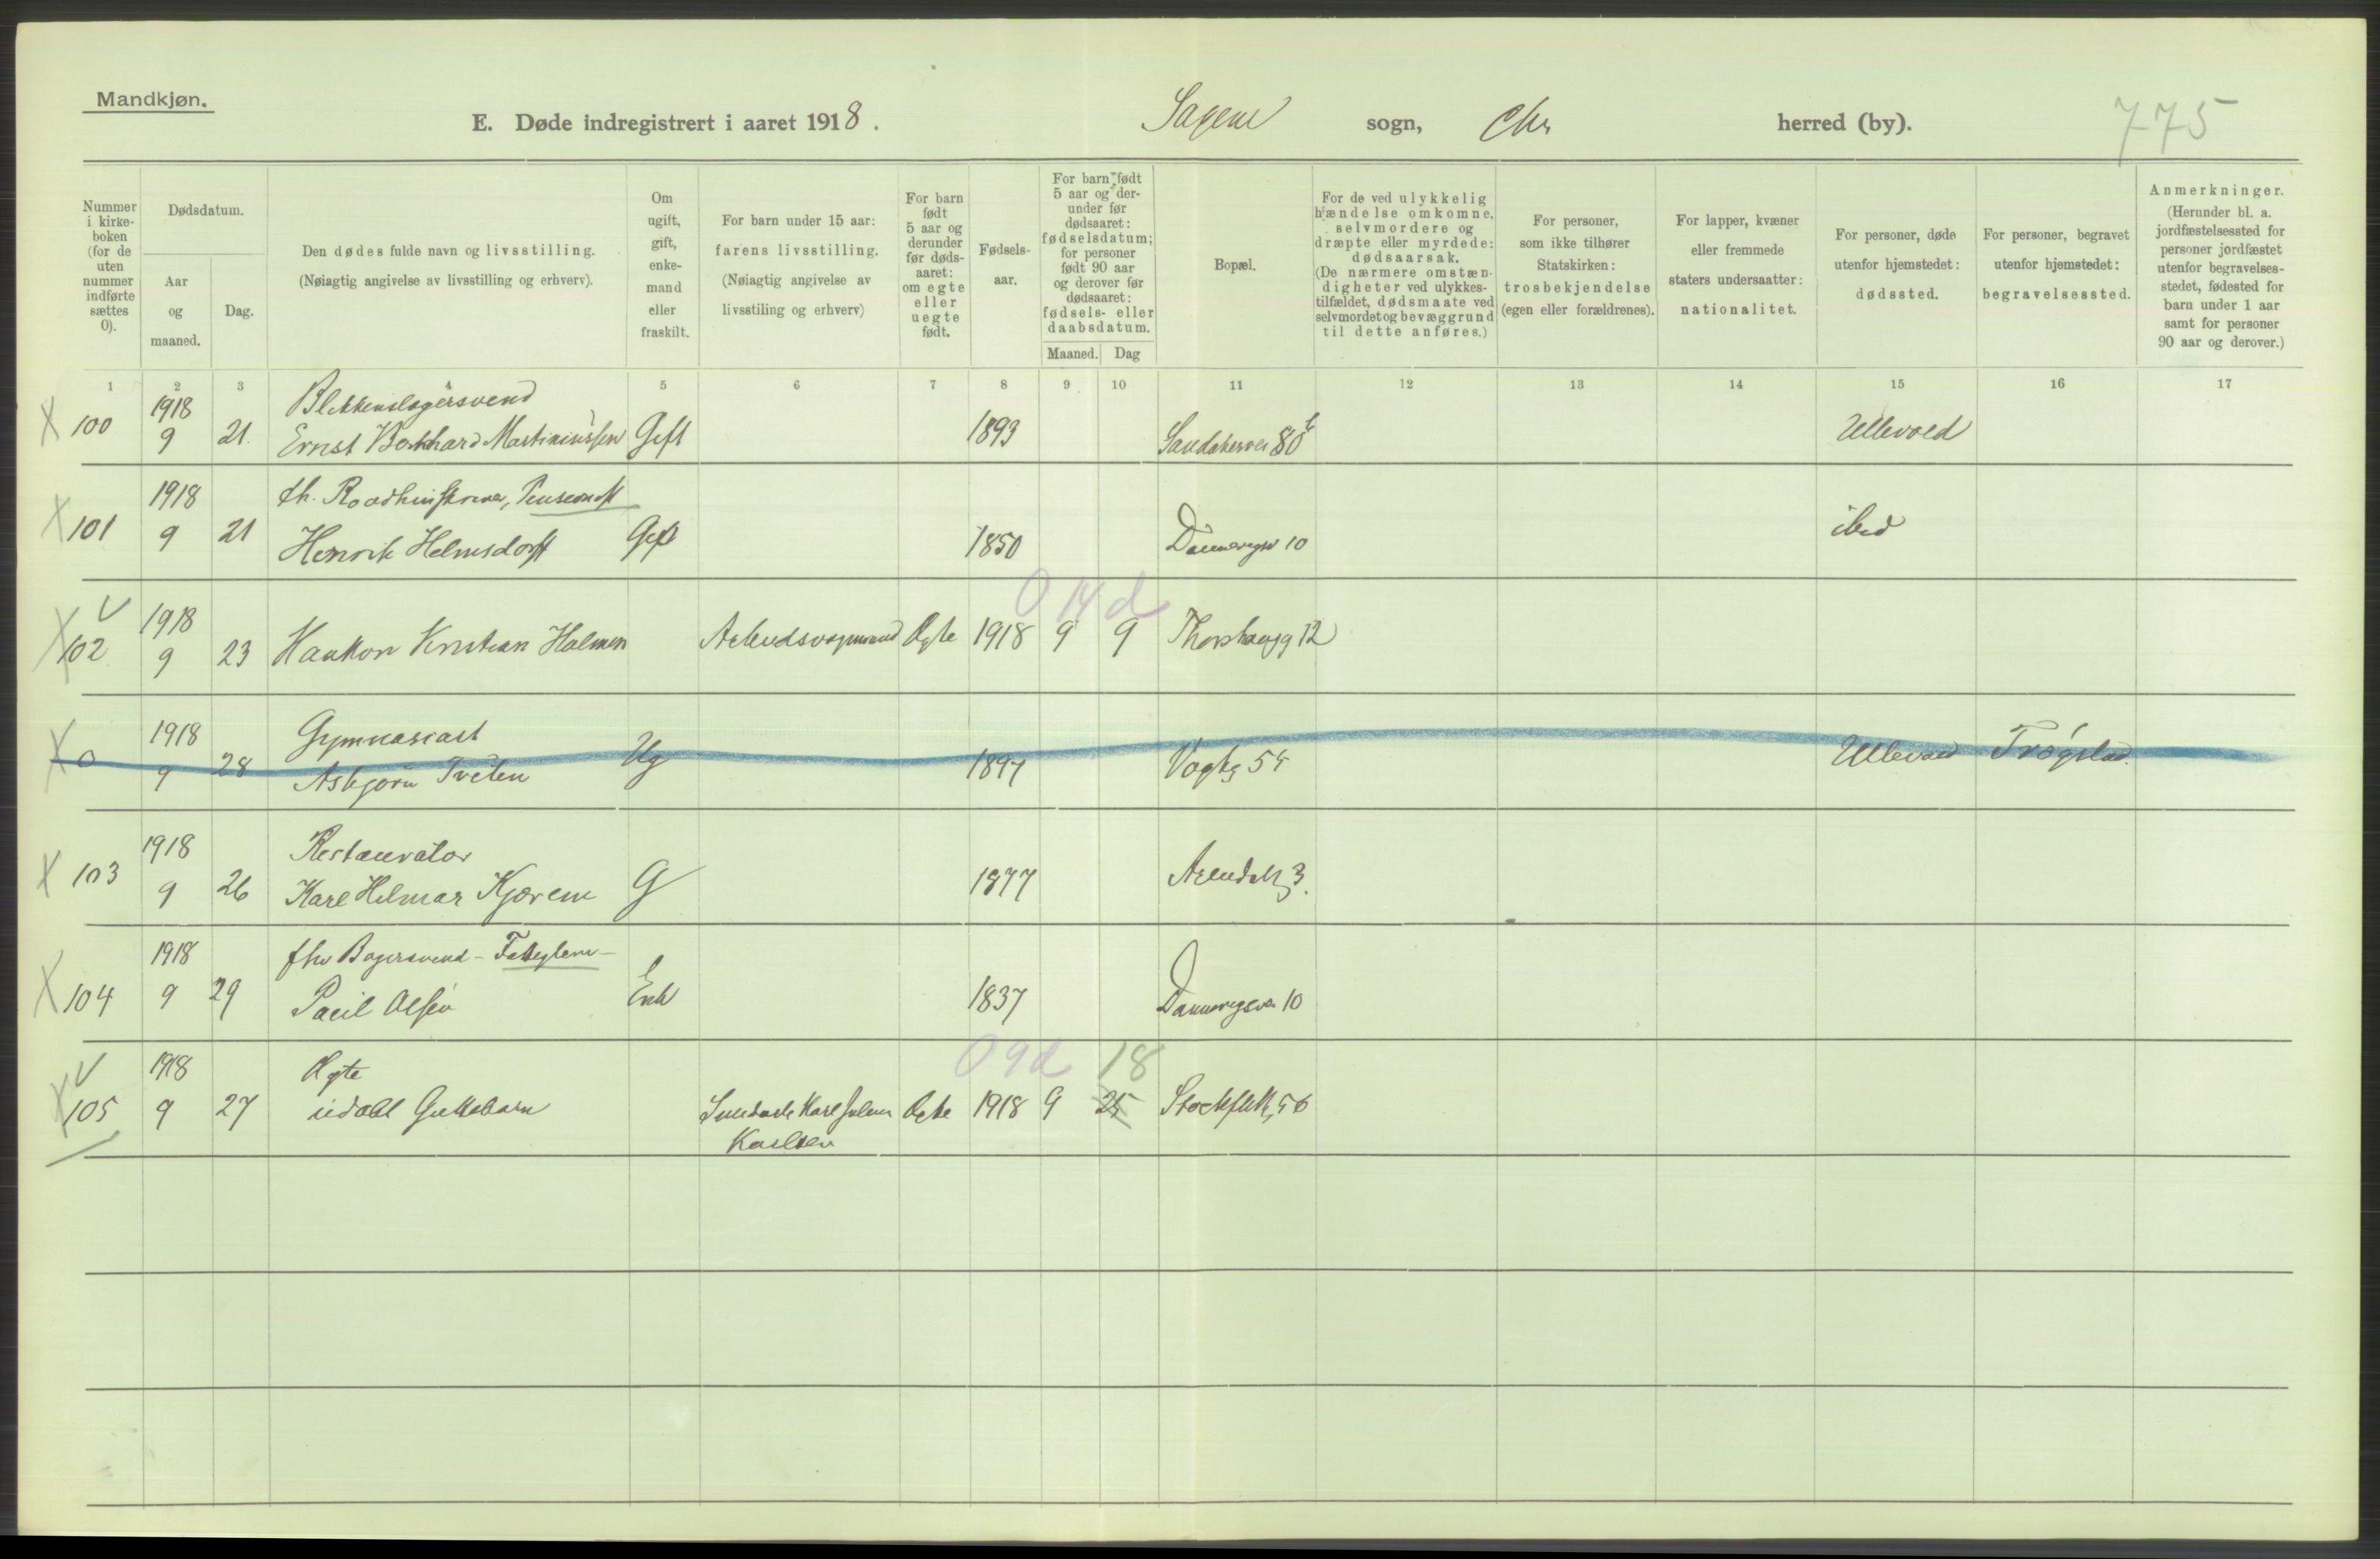 Mandkjøn.
E. Døde indregistrert i aaret 1918. Sagene sogn, Chr herred (by). 775
Nummer i kirke-boken (for de uten nummer indførte sættes 0).
Dødsdatum.
Aar og maaned.
Dag.
Den dødes fulde navn og livsstilling.
(Nøiagtig angivelse av livsstilling og erhverv).
Om ugift, gift, enke-mand eller fraskilt.
For barn under 15 aar: farens livsstilling.
(Nøiagtig angivelse av livsstiling og erhverv)
For barn født 5 aar og derunder før døds-aaret: om egte eller uegte født.
Fødsels-aar.
For barn født 5 aar og der-under før dødsaaret: fødselsdatum; for personer født 90 aar og derover før dødsaaret: fødsels- eller daabsdatum.
Maaned. Dag
Bopæl.
For de ved ulykkelig hændelse omkomne, selvmordere og dræpte eller myrdede: dødsaarsak. (De nærmere omstæn-digheter ved ulykkes-tilfældet, dødsmaate ved selvmordet og bevæggrund til dette anføres.)
For personer, som ikke tilhører Statskirken: trosbekjendelse (egen eller forældrenes).
For lapper, kvæner eller fremmede staters undersaatter: nationalitet.
For personer, døde utenfor hjemstedet: dødssted.
For personer, begravet utenfor hjemstedet: begravelsessted.
Anmerkninger.
(Herunder bl. a. jordfæstelsessted for personer jordfæstet utenfor begravelses-stedet, fødested for barn under 1 aar samt for personer 90 aar og derover.)
1 2 3 4 5 6 7 8 9 10 11 12 13 14 15 16 17
1918 Blikkenslagersvend
X 100 9 21. Ernst Martiniussen Gift 1893 Sandakervei 80 b Ullevold
1918 fh.
X 101 9 21 Henrik Helmsdorff Gift 1850 10 ibid
0 14 d
V 1918
X 102 9 23 Haakon Kristian Holmen Arbeidsvognmand Ægte 1918 9 9 Thorshaugg 12
1918 Gymnasiast
X 0 9 28 Asbjørn Tveten Ug 1897 Vogtg 54 Ullevold Trøgstad.
1918 Restauratør
X 103 9 26 Karl Hilmar Kjørem G 1877 Arendalsg 3.
1918 fhv Bagersvend - Fattiglem
X 104 9 29 Paul Olsen Enk 1837 Dannevigsvei 10
0 9 d 18
V 1918 Ægte
X 105 9 27 udøbt Guttebarn Karl Ægte 1918 9 25 56
Karlsen